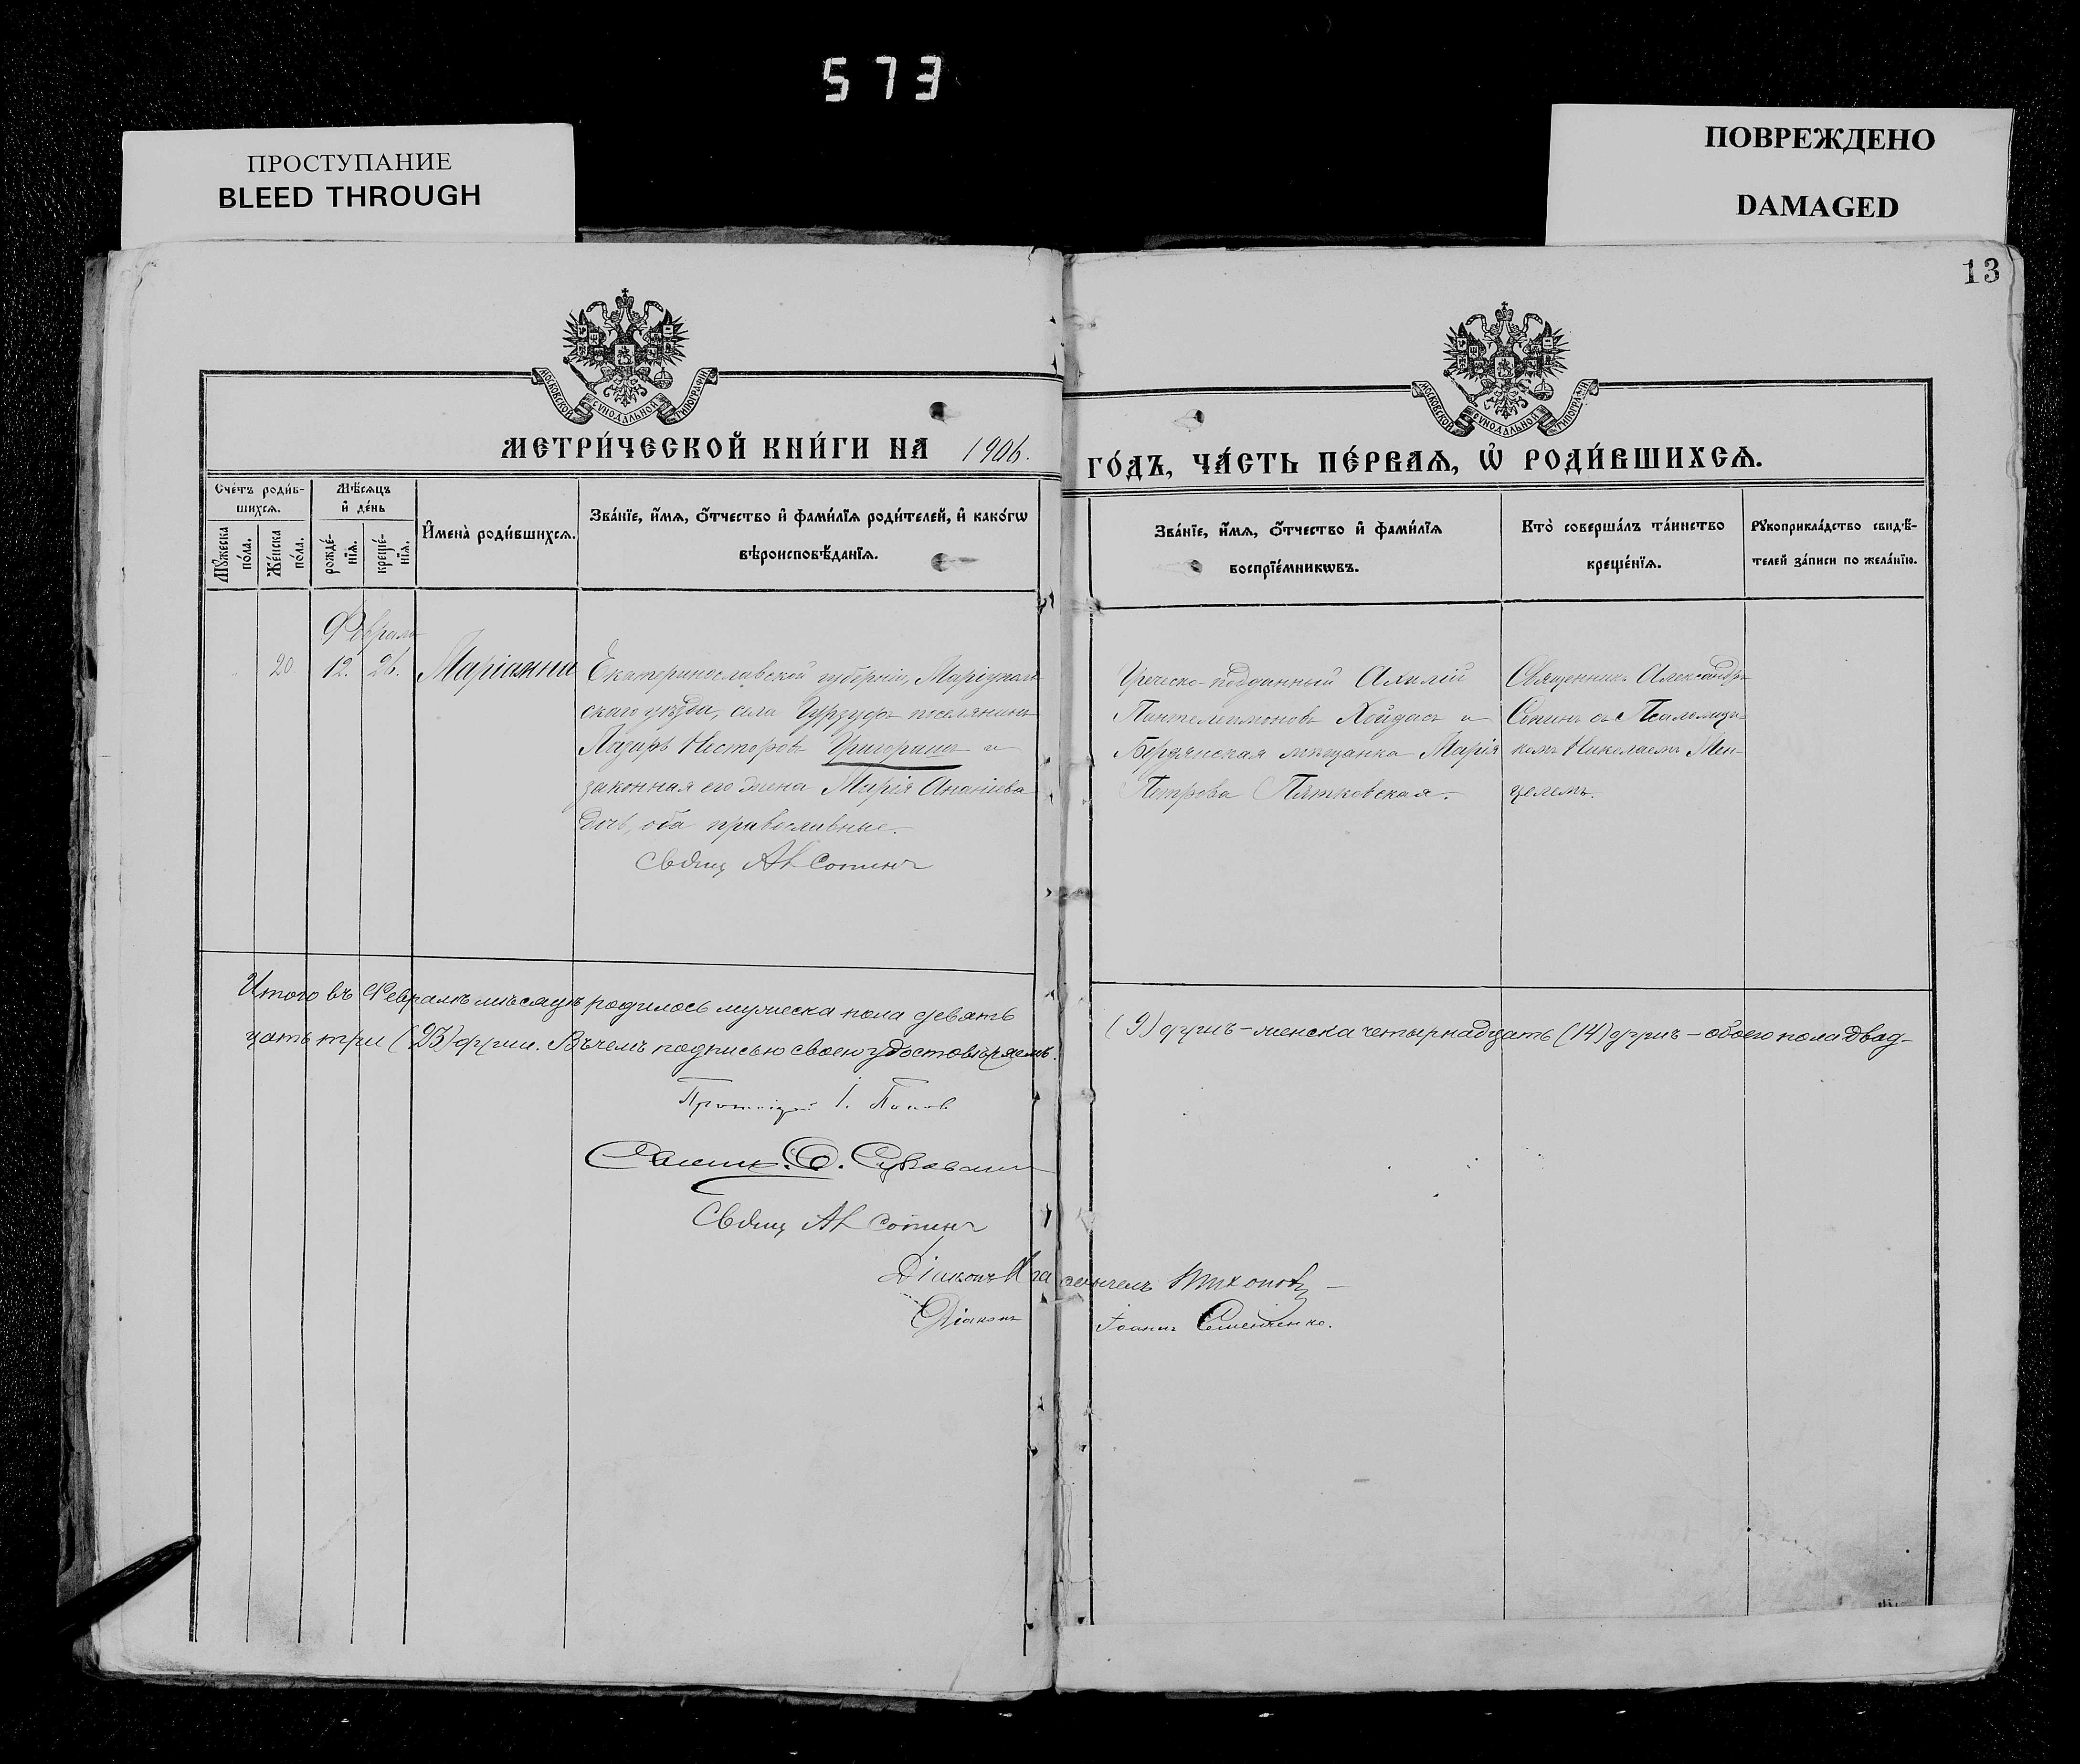 573
ПРОСТУПАНИЕ
BLEED THROUGH
ПОВРЕЖДЕНО
DAMAGED
13
МОСКОВСКОЙ СУНОДАЛЬНОЙ ТИПОГРАФІИ
МОСКОВСКОЙ СУНОДАЛЬНОЙ ТИПОГРАФІИ
МЕТРИ́ЧЕСКОЙ КНИ́ГИ НА 1906.
ГО́ДЪ, ЧА́СТЬ ПЕ́РВАѦ, Ѡ҆ РОДИ́ВШИХСѦ.
Сче́тъ роди́в-
шихсѧ.
Мѣ́сѧцъ
и҆ де́нь
Мꙋ́жеска
по́ла.
Же́нска
по́ла.
рожде́-
нїѧ.
креще́-
нїѧ.
И҆мена̀ роди́вшихсѧ.
Зва́нїе, и҆́мѧ, ѻ҆́тчество и҆ фами́лїѧ роди́телей, и҆ како́гѡ
вѣроисповѣ́данїѧ.
Зва́нїе, и҆́мѧ, ѻ҆́тчество и҆ фами́лїѧ
воспрїе́мникѡвъ.
Кто̀ соверша́лъ та́инство
креще́нїѧ.
Рꙋкоприкла́дство свидѣ́-
телей за́писи по жела́нїю.
Февраль
20. 12. 26. Маріанна
Екатеринославской губерніи, Маріуполь
скаго уѣзда, села Гурзуфъ поселянинъ
Лазарь Несторовъ Григорашъ и
законная его жена Марія Ананіева
дочь, оба православные.
Свящ А Сопинъ
Греческо-подданный Ахилій
Пантелеимоновъ Хойдасъ и
Бердянская мѣщанка Марія
Петрова Пятковская.
Священникъ Александръ
Сопинъ съ Псаломщи-
комъ Николаемъ Мен-
целемъ.
Итого въ Февралѣ мѣсяцѣ родилось мужеска пола девять
(9) душъ - женска четырнадцать (14) душъ - обоего пола двад-
цать три (23) души. Въ чемъ подписью своею удостовѣряемъ.
Протоіерей І. Попов
Свящ А Сопинъ
Діаконъ Тихоновъ
Діаконъ Іоаннъ Семенченко.